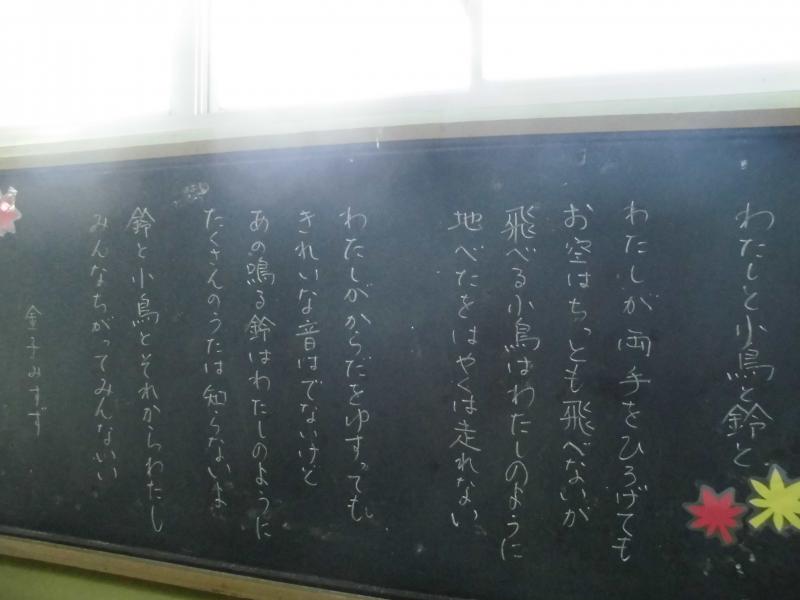 わたしと小鳥と鈴と
わたしが両手をひろげても
お空はちっとも飛べないが
飛べる小鳥はわたしのように
地べたをはやくは走れない
わたしがからだをゆすっても
きれいな音はでないけど
あの鳴る鈴はわたしのように
たくさんのうたは知らないよ
鈴と小鳥とそれからわたし
みんなちがってみんないい
金子みすず